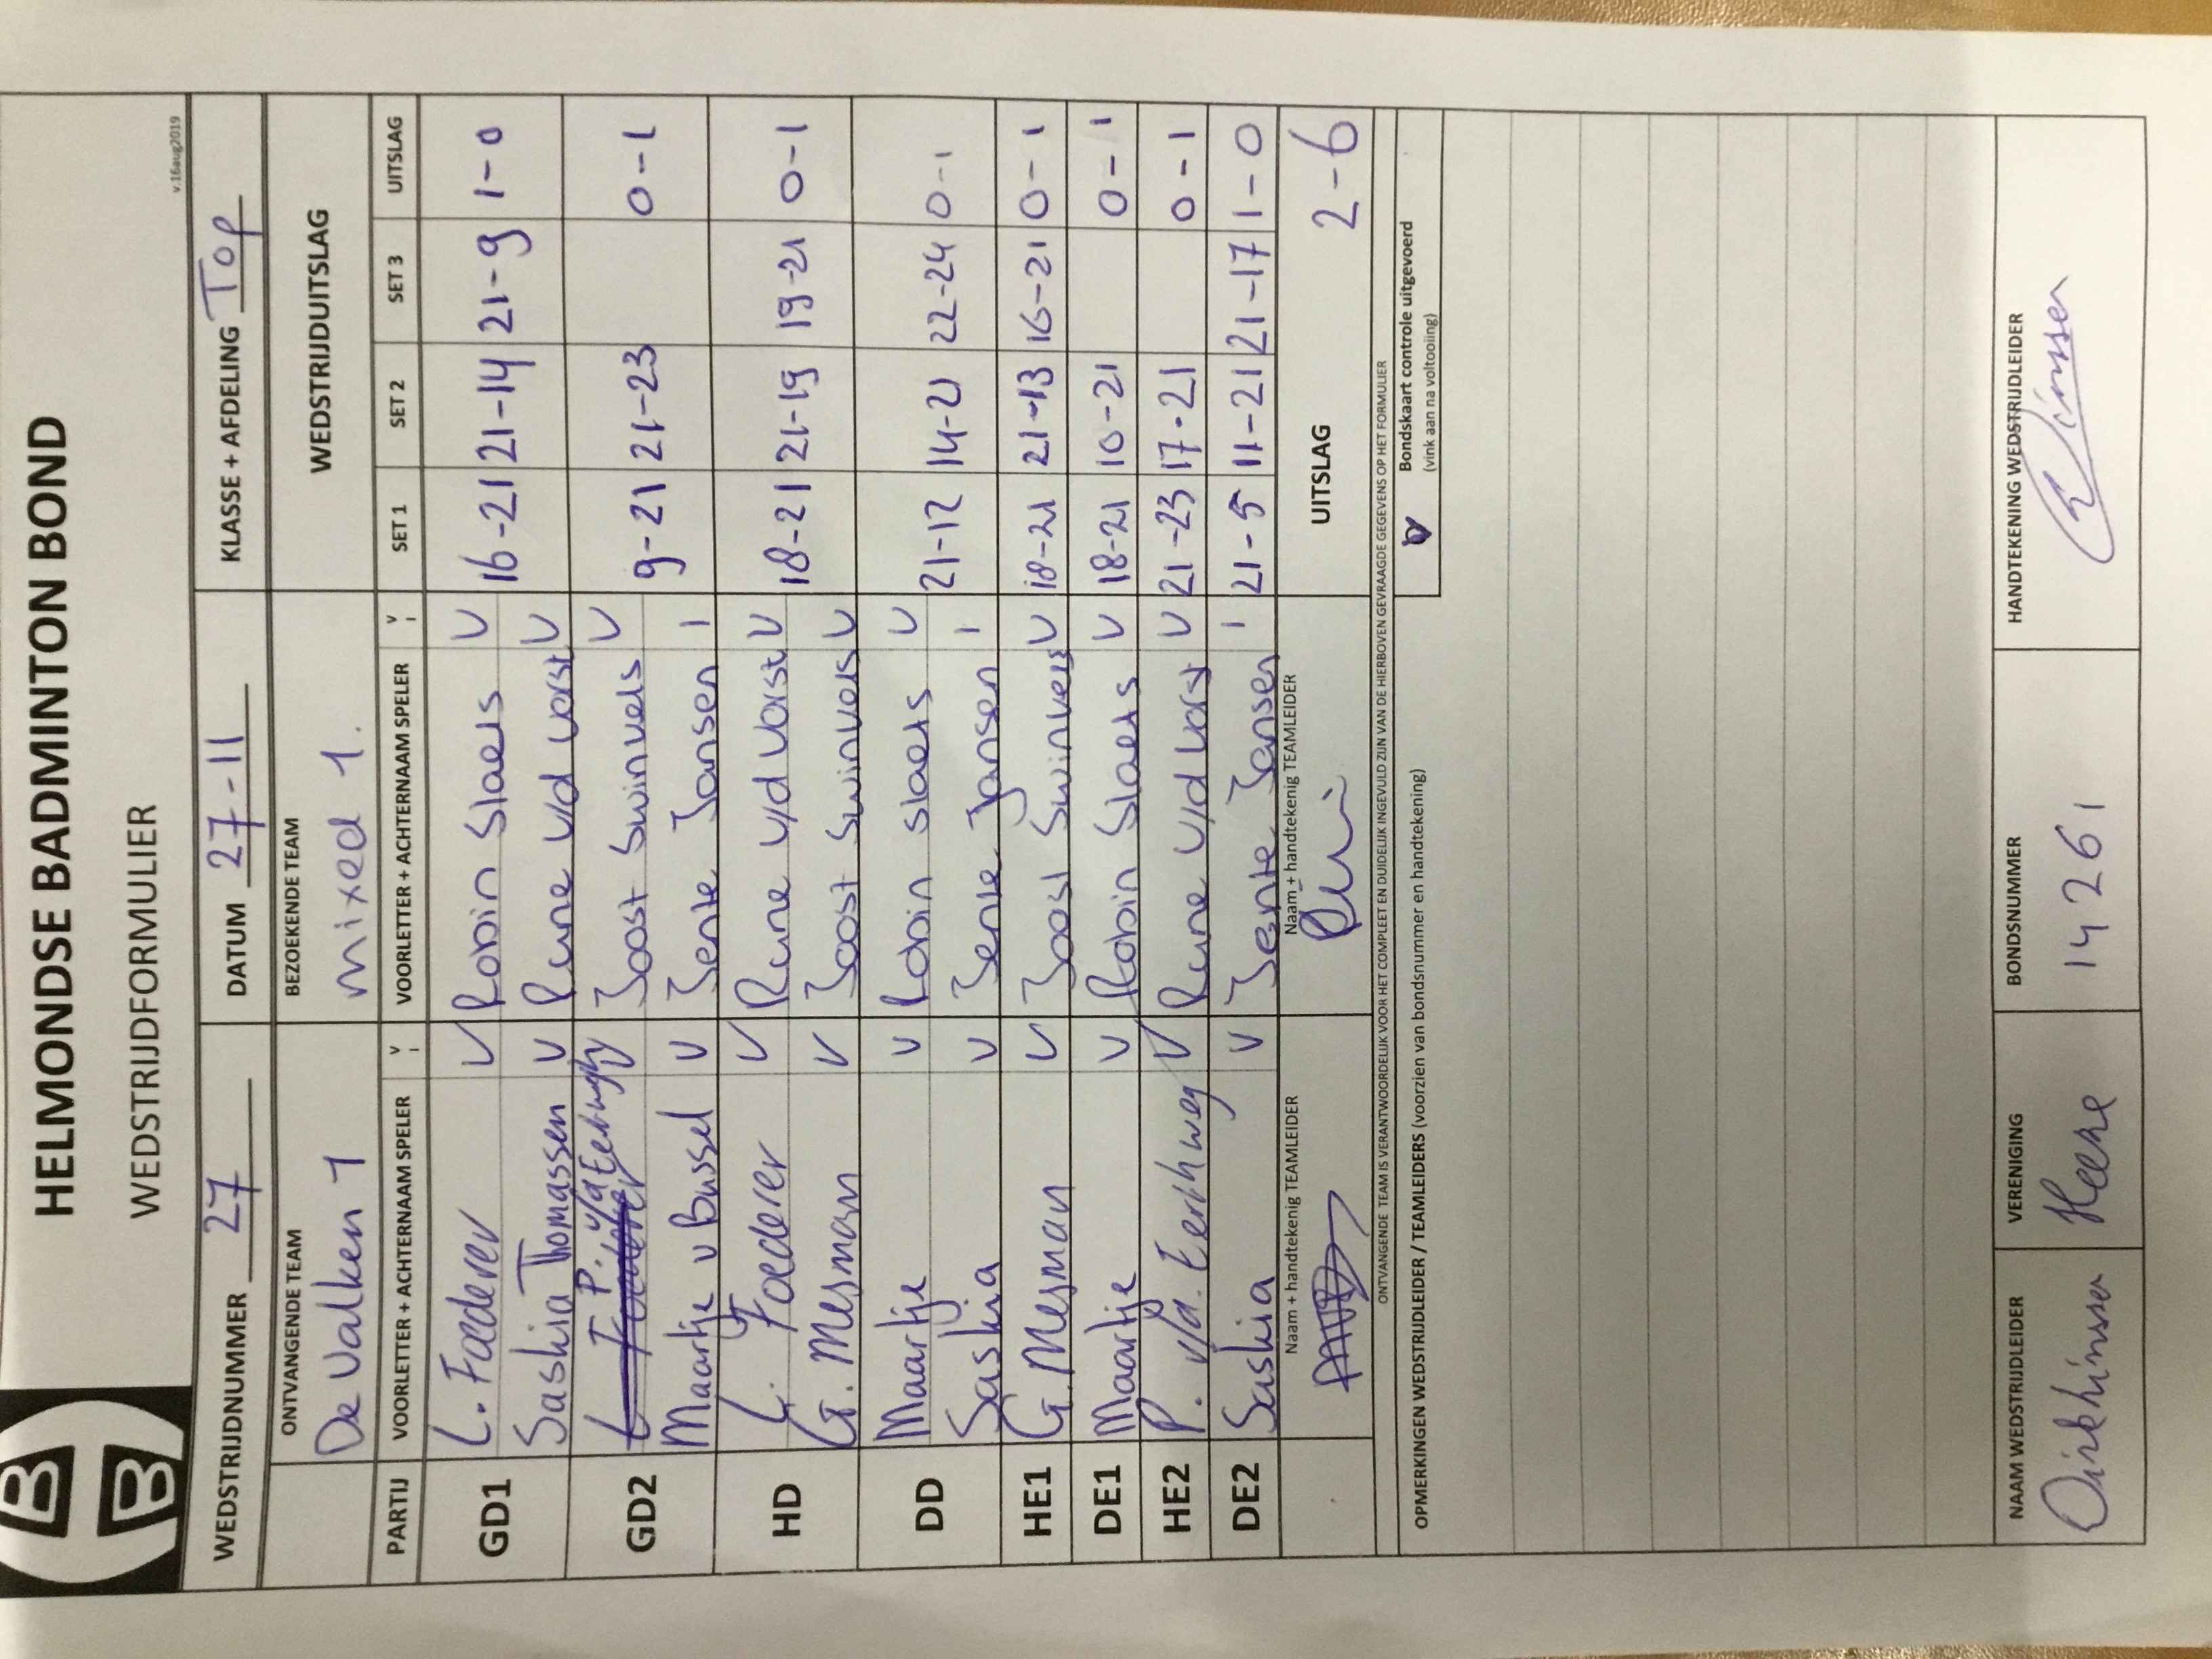 HELMONDSE BADMINTON BOND
WEDSTRIJDFORMULIER
v.16aug2019
WEDSTRIJDNUMMER 27 DATUM 27-11 KLASSE + AFDELING Top
ONTVANGENDE TEAM BEZOEKENDE TEAM WEDSTRIJDUITSLAG
De Valken 1 mixed 1.
PARTIJ VOORLETTER + ACHTERNAAM SPELER V VOORLETTER + ACHTERNAAM SPELER V SET 1 SET 2 SET 3 UITSLAG
GD1 L. Foederer V Robin Slaets V 16-21 21-14 21-9 1-0
Saskia Thomassen V Rune v/d Vorst V
GD2 P. v/d Eerthwegh V Joost Swinvels V 9-21 21-23 0-1
Maartje v Bussel V Jente Jansen I
HD L. Foederer V Rune v/d Vorst V 18-21 21-19 19-21 0-1
G. Mesman V Joost Swinvels V
DD Maartje V Robin Slaets V 21-12 14-21 22-24 0-1
Saskia V Jente Jansen I
HE1 G. Mesman V Joost Swinvels V 18-21 21-13 16-21 0-1
DE1 Maartje V Robin Slaets V 18-21 10-21 0-1
HE2 P. v/d. Eerthweg V Rune v/d Vorst V 21-23 17-21 0-1
DE2 Saskia V Jente Jansen I 21-5 11-21 21-17 1-0
Naam + handtekenig TEAMLEIDER Naam + handtekenig TEAMLEIDER UITSLAG 2-6
ONTVANGENDE TEAM IS VERANTWOORDELIJK VOOR HET COMPLEET EN DUIDELIJK INGEVULD ZIJN VAN DE HIERBOVEN GEVRAAGDE GEGEVENS OP HET FORMULIER
OPMERKINGEN WEDSTRIJDLEIDER / TEAMLEIDERS (voorzien van bondsnummer en handtekening) V Bondskaart controle uitgevoerd
(vink aan na voltooiing)
NAAM WEDSTRIJDLEIDER VERENIGING BONDSNUMMER HANDTEKENING WEDSTRIJDLEIDER
Dirk Linssen Heere 14261